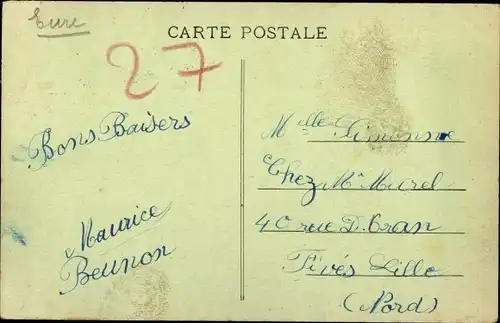 Eure
CARTE POSTALE
27
Bons Baisers
Maurice
Beunon
Melle Simonne
Chez Mr Murel
40 rue D. Cran
Fivés Lille
(Nord)